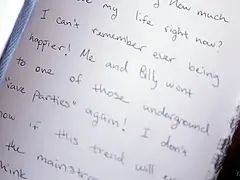 my life right now?
I can't remember ever being
happier! Me and Billy went
to one of those underground
"rave parties" again! I don't
if this trend will
the mainstream